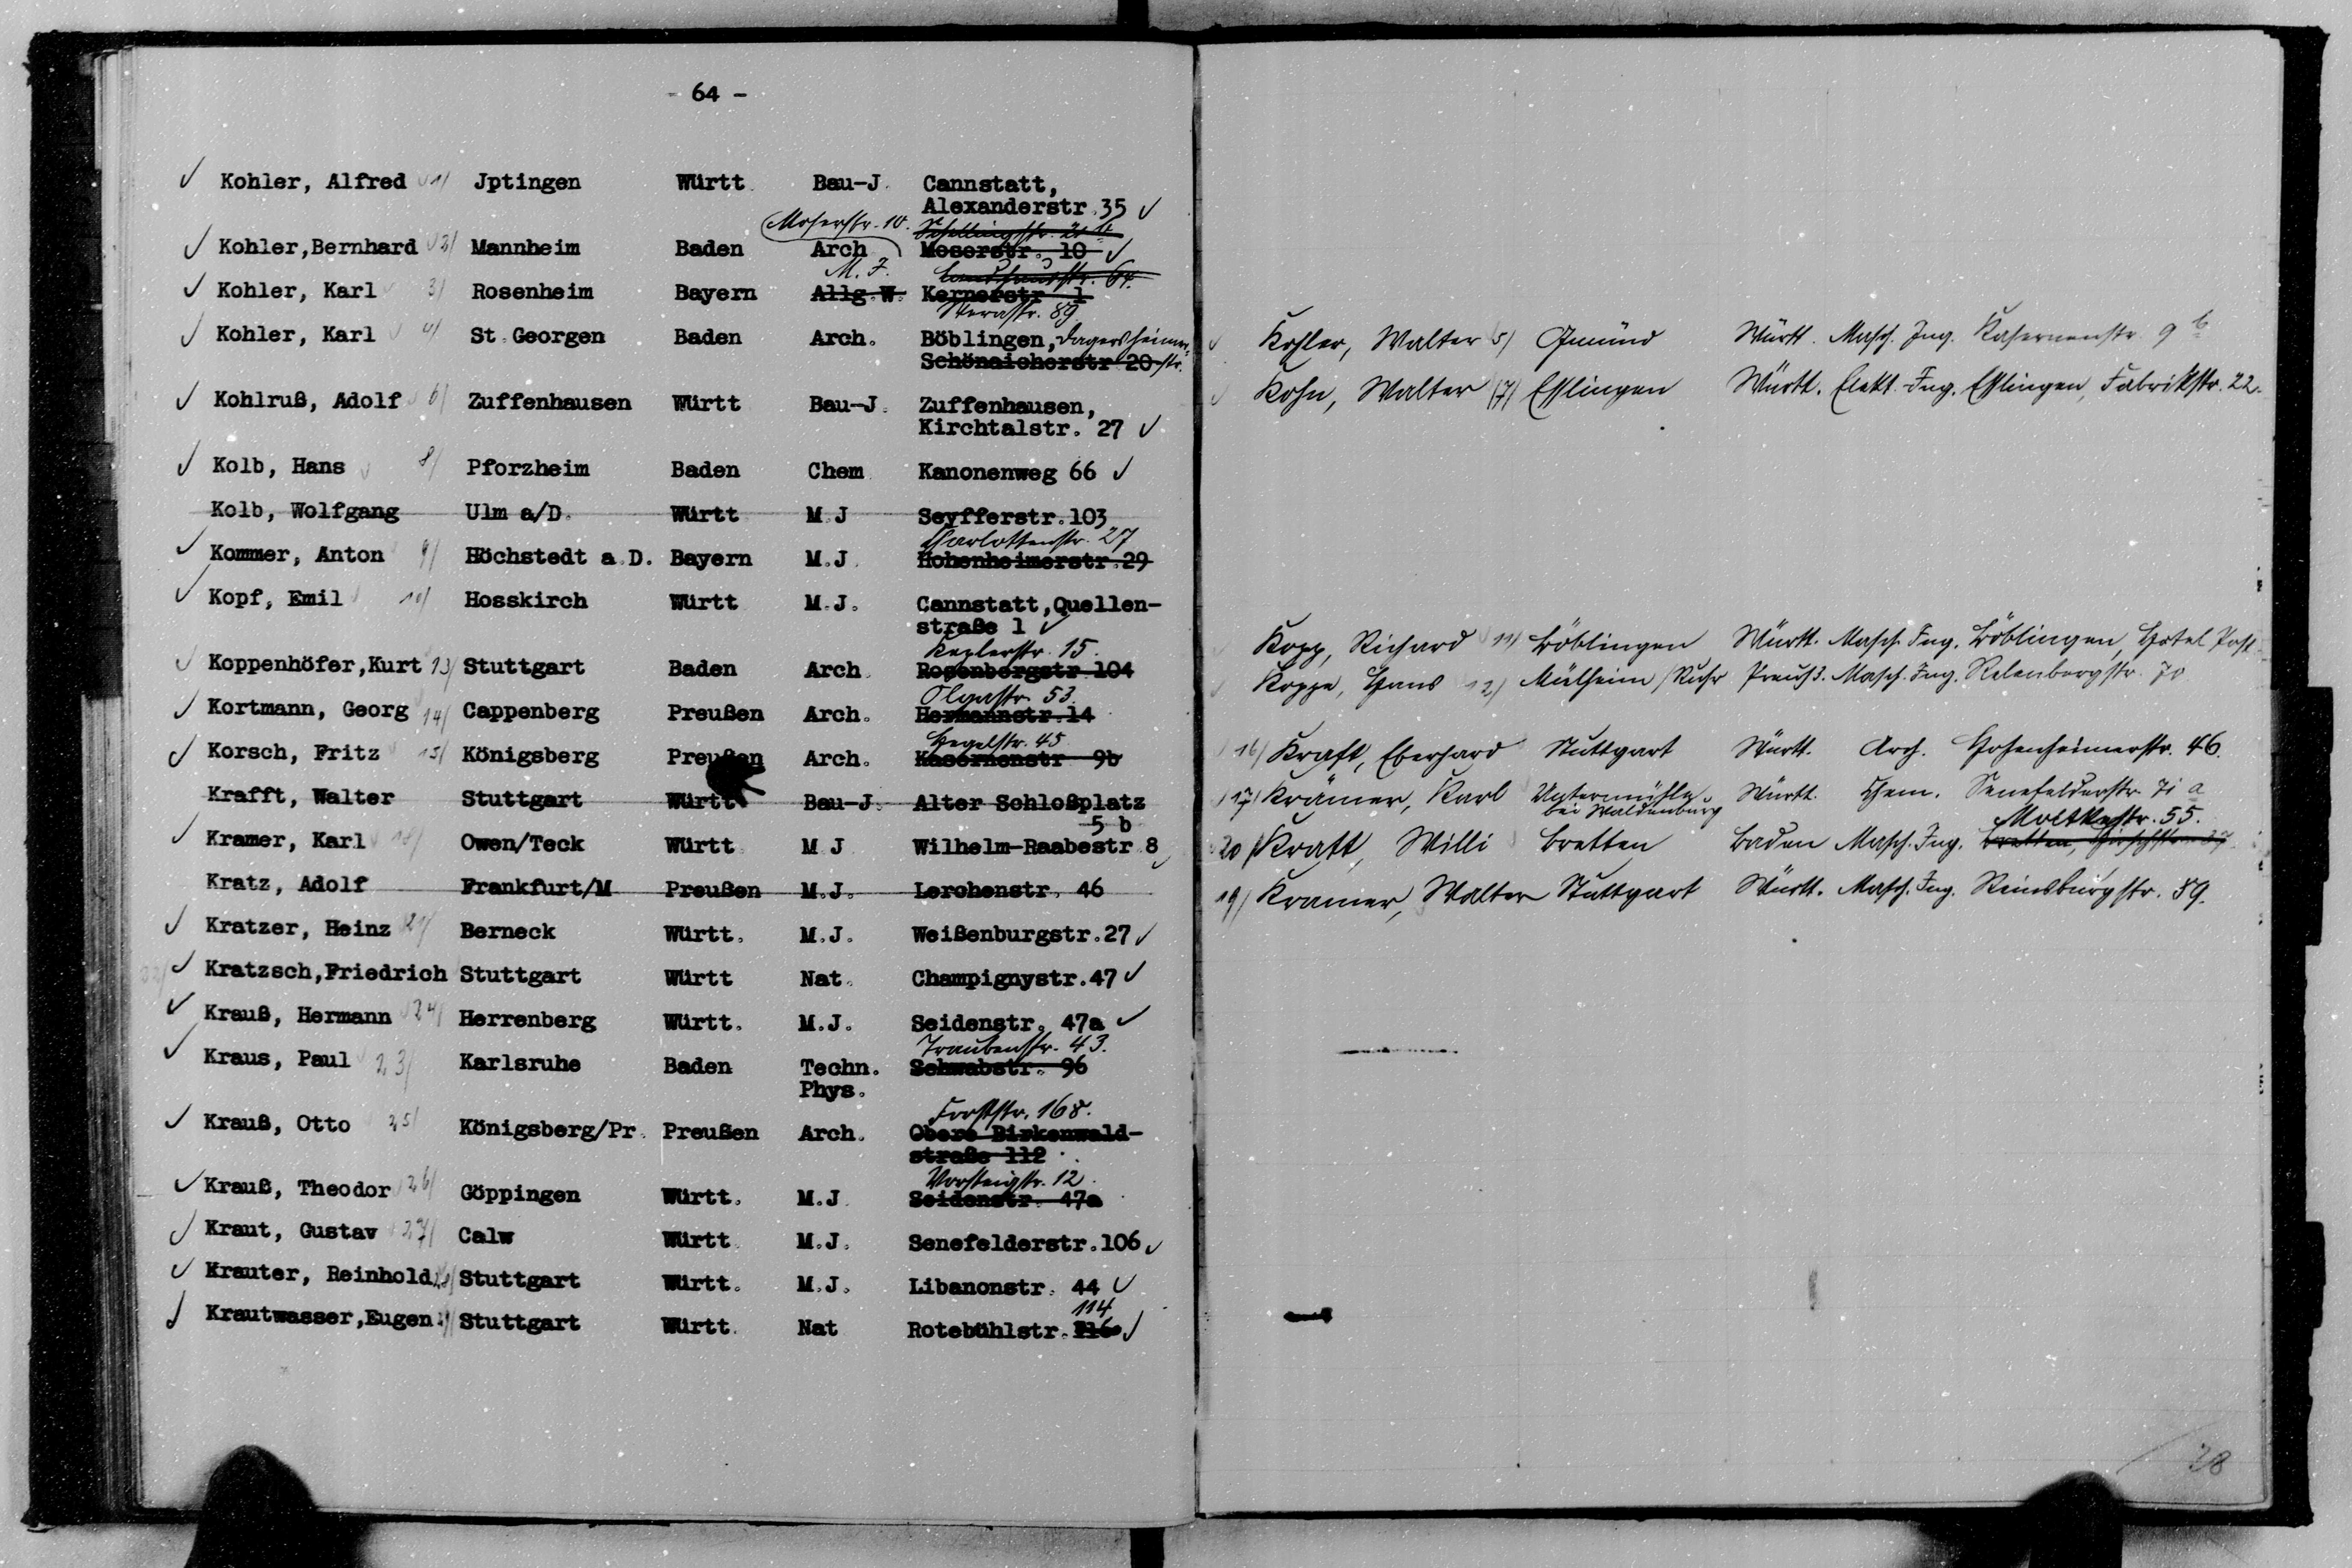 - 64 -
✓ Kohler, Alfred 1/ Jptingen Württ. Bau-J. Cannstatt,
Alexanderstr. 35 ✓
Moserstr. 10.
✓ Kohler,Bernhard 2/ Mannheim Baden Arch Moserstr. 10 ✓
M. J. Landhausstr. 64.
✓ Kohler, Karl 3/ Rosenheim Bayern Allg.W. Kernerstr 1
Werastr. 89
✓ Kohler, Karl 4/ St.Georgen Baden Arch. Böblingen, Dagersheimer-
Schönaicherstr 20 str.
✓ Kohlruß, Adolf 6/ Zuffenhausen Württ Bau-J. Zuffenhausen,
Kirchtalstr. 27 ✓
✓ Kolb, Hans 8/ Pforzheim Baden Chem Kanonenweg 66 ✓
Kolb, Wolfgang Ulm a/D. Württ M.J Seyfferstr.103
Charlottenstr. 27
✓ Kommer, Anton 9/ Höchstedt a.D. Bayern M.J. Hohenheimerstr.29
✓ Kopf, Emil 10/ Hosskirch Württ M.J. Cannstatt,Quellen-
straße 1 ✓
Keplerstr. 15.
✓ Koppenhöfer,Kurt 13/ Stuttgart Baden Arch. Rosenbergstr 104
Olgastr. 53.
✓ Kortmann, Georg 14/ Cappenberg Preußen Arch. Hermannstr.14
Hegelstr. 45
✓ Korsch, Fritz 15/ Königsberg Preußen Arch. Kasernenstr 9b
Krafft, Walter Stuttgart Württ Bau-J. Alter Schloßplatz
5 b
✓ Kramer, Karl 18/ Owen/Teck Württ M J Wilhelm-Raabestr 8 ✓
Kratz, Adolf Frankfurt/M Preußen M.J. Lerchenstr. 46
✓ Kratzer, Heinz 21/ Berneck Württ. M.J. Weißenburgstr.27 ✓
22/ ✓ Kratzsch,Friedrich Stuttgart Württ Nat. Champignystr.47 ✓
✓ Krauß, Hermann 24/ Herrenberg Württ. M.J. Seidenstr. 47a ✓
Traubenstr. 43.
✓ Kraus, Paul 23/ Karlsruhe Baden Techn. Schwabstr. 96
Phys.
Forststr. 168.
✓ Krauß, Otto 25/ Königsberg/Pr. Preußen Arch. Obere Birkenwald-
straße 112
Vorsteigstr. 12.
✓ Krauß, Theodor 26/ Göppingen Württ. M.J Seidenstr. 47a
✓ Kraut, Gustav 27/ Calw Württ. M.J. Senefelderstr.106 ✓
✓ Krauter, Reinhold Stuttgart Württ. M.J. Libanonstr. 44 ✓
114
✓ Krautwasser,Eugen Stuttgart Württ. Nat Rotebühlstr. 116 ✓
✓ Kohler, Walter 5/ Gmünd Württ. Masch. Ing. Kasernenstr. 9 b
✓ Kohn, Walter 7/ Esslingen Württ. Elekt. Ing. Esslingen, Fabrikstr. 22.
✓ Kopp, Richard 11/ Böblingen Württ. Masch. Ing. Böblingen, Hotel Post
✓ Koppe, Hans 12/ Mülheim/Ruhr Preuß. Masch. Ing. Relenbergstr. 70
16/ Kraft, Eberhard Stuttgart Württ. Arch. Hohenheimerstr. 46.
17/ Krämer, Karl Untermühle Württ. Chem. Senefelderstr. 71 a
bei Waldenburg Moltkestr. 55.
20/ Kratt, Willi Bretten Baden Masch. Ing. Bretten,
19/ Kramer, Walter Stuttgart Württ. Masch. Ing. Reinsburgstr. 89.
28